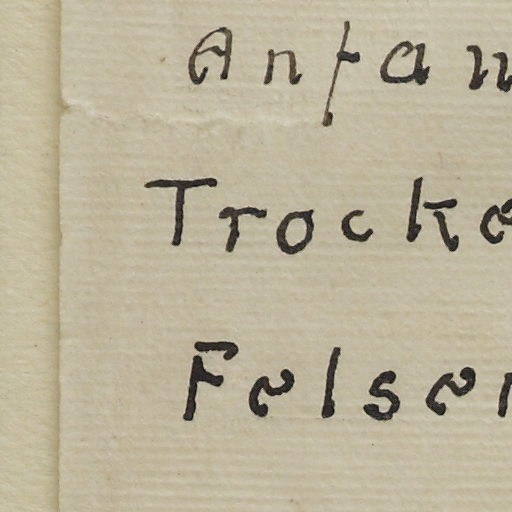 Anfan
Trocke
Felsen